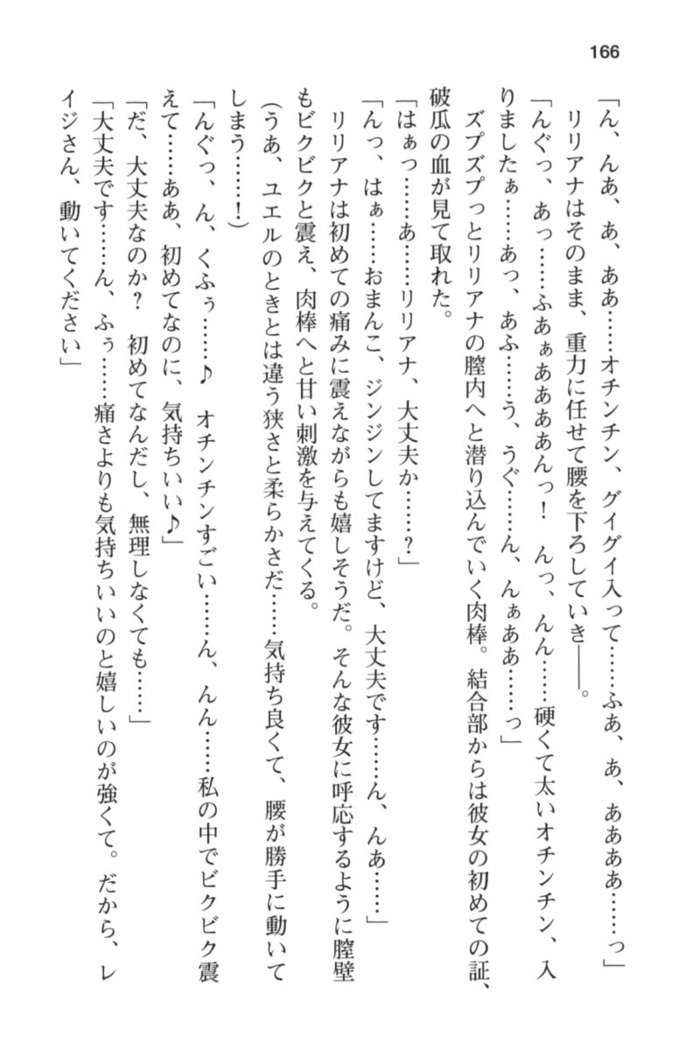 166
「ん、んあ、あ、ああ……オチンチン、グイグイ入って……ふあ、あ、ああああ……っ」
リリアナはそのまま、重力に任せて腰を下ろしていき――。
「んぐっ、あっ……ふあぁああああんっ！　んっ、んん……硬くて太いオチンチン、入
りましたぁ……あっ、あふ……う、うぐ……ん、んぁああ……っ」
ズプズプっとリリアナの膣内へと潜り込んでいく肉棒。結合部からは彼女の初めての証、
破瓜の血が見て取れた。
「はぁっ……あ……リリアナ、大丈夫か……？」
「んっ、はぁ……おまんこ、ジンジンしてますけど、大丈夫です……ん、んあ……」
リリアナは初めての痛みに震えながらも嬉しそうだ。そんな彼女に呼応するように膣壁
もビクビクと震え、肉棒へと甘い刺激を与えてくる。
（うあ、ユエルのときとは違う狭さと柔らかさだ……気持ち良くて、腰が勝手に動いて
しまう……！）
「んぐっ、ん、くふぅ……♪　オチンチンすごい……ん、んん……私の中でビクビク震
えて……ああ、初めてなのに、気持ちいい♪」
「だ、大丈夫なのか？　初めてなんだし、無理しなくても……」
「大丈夫です……ん、ふぅ……痛さよりも気持ちいいのと嬉しいのが強くて。だから、レ
イジさん、動いてください」